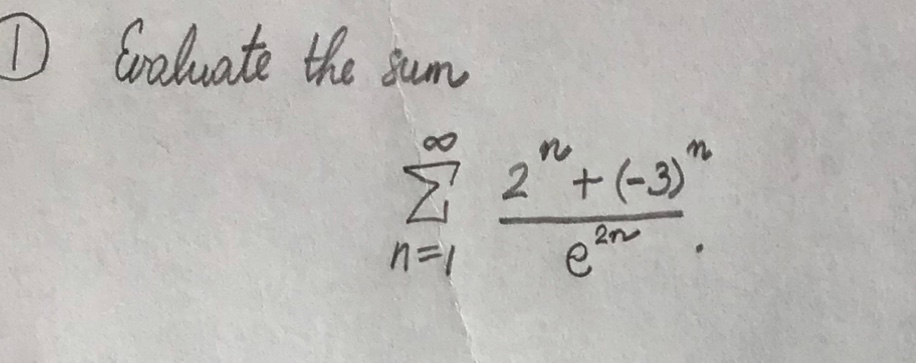 ① Evaluate the sum
∑_{n=1}^{∞} \frac{2^n + (-3)^n}{e^{2n}} .